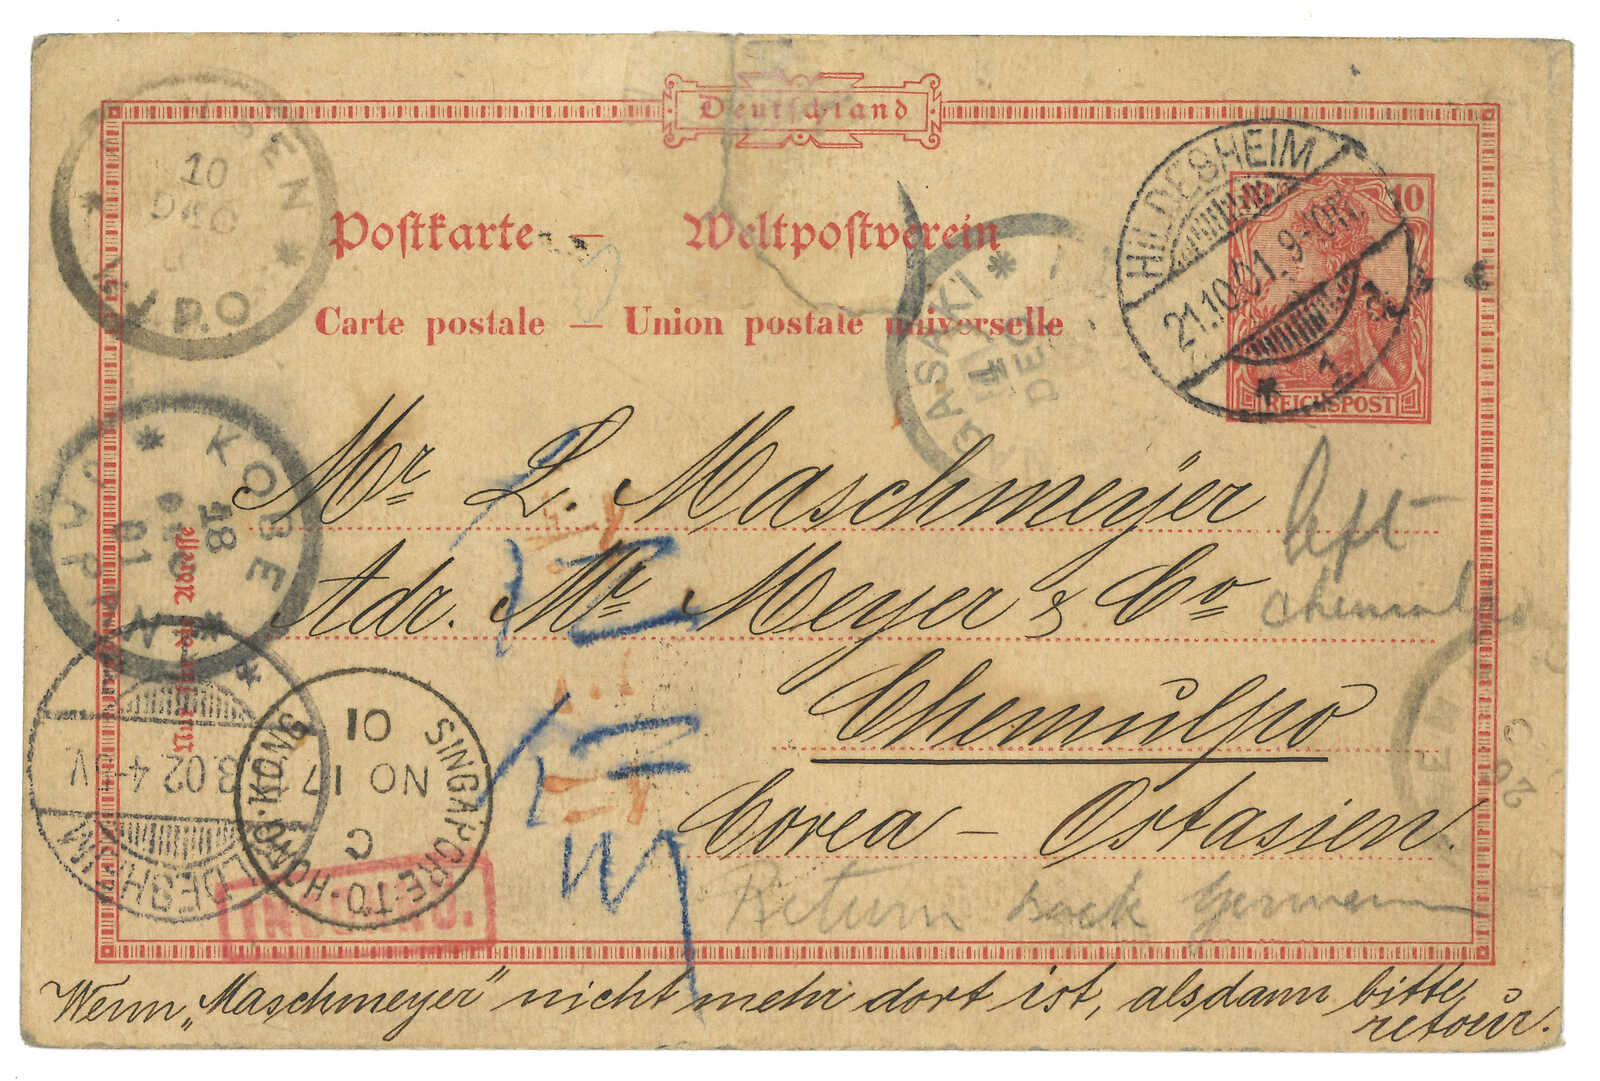 Deutschland
Postkarte — Weltpostverein
Carte postale — Union postale universelle
10
REICHSPOST
HILDESHEIM
21.10.01. 9-10V.
* 1 a
10
DEC
I.J.P.O
NAGASAKI
14
DEC
KOBE
18
DEC
01
JAPAN
Mr L. Maschmeyer
Adr. Mr Meyer & Co
Chemulpo
Corea – Ostasien.
left
Chemulpo
Return back Germany
Nur für die Adresse
SINGAPORE-TO-HONG-KONG
C
NO 17
01
HILDESHEIM
3.02.4-5V
Wenn „Maschmeyer" nicht mehr dort ist, alsdann bitte
retour.